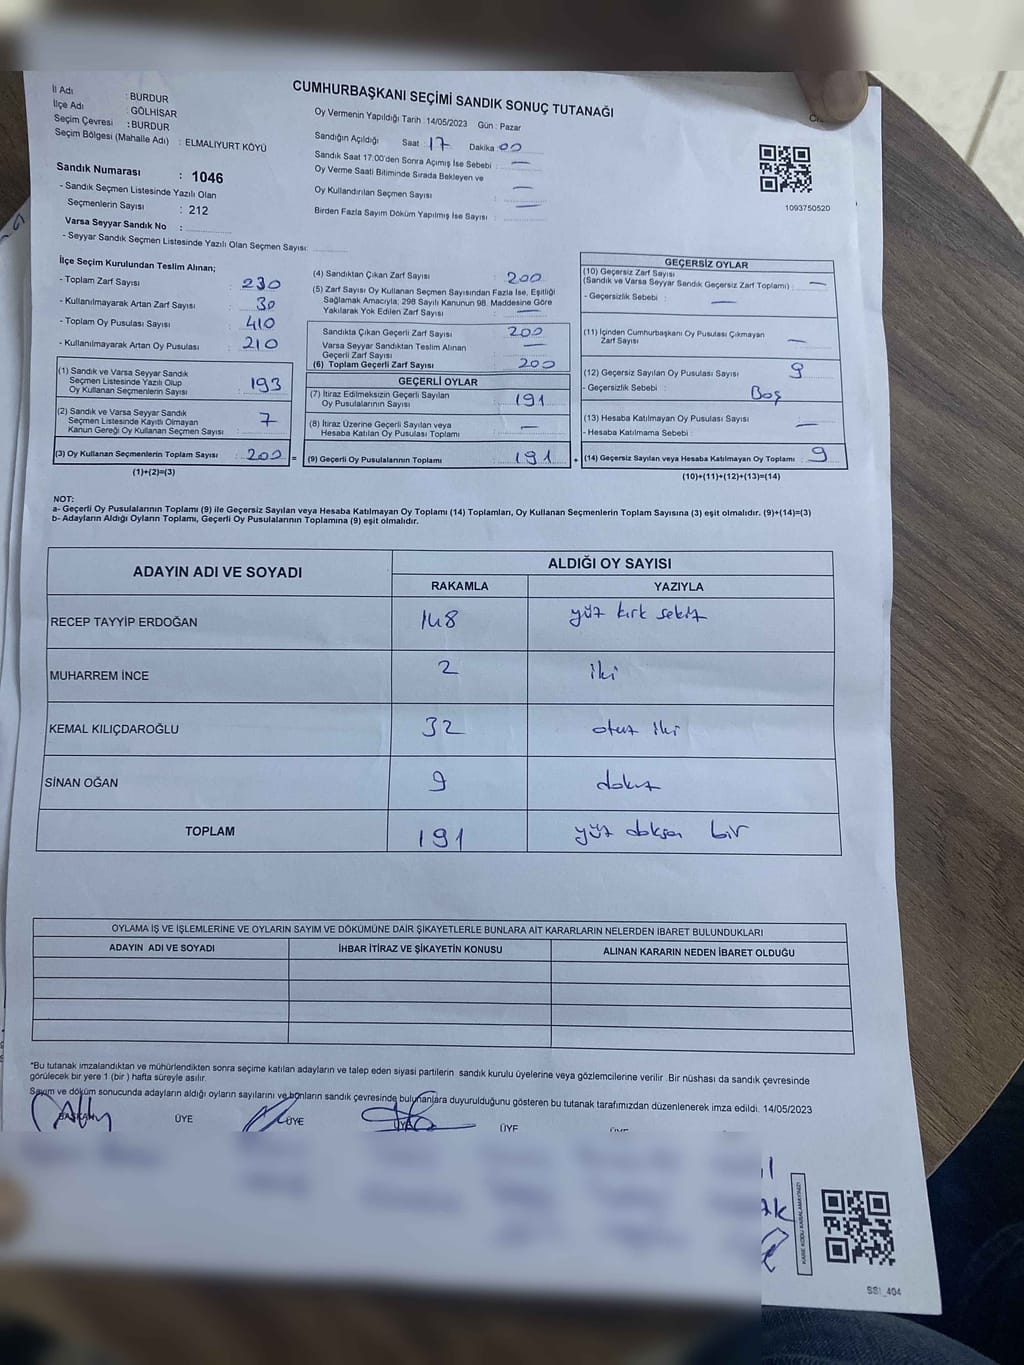 CUMHURBAŞKANI SEÇİMİ SANDIK SONUÇ TUTANAĞI
İl Adı : BURDUR
İlçe Adı : GÖLHİSAR
Seçim Çevresi : BURDUR
Seçim Bölgesi (Mahalle Adı) : ELMALIYURT KÖYÜ
Sandık Numarası : 1046
- Sandık Seçmen Listesinde Yazılı Olan
Seçmenlerin Sayısı : 212
Varsa Seyyar Sandık No :
- Seyyar Sandık Seçmen Listesinde Yazılı Olan Seçmen Sayısı:
Oy Vermenin Yapıldığı Tarih : 14/05/2023 Gün : Pazar
Sandığın Açıldığı Saat 17 Dakika 00
Sandık Saat 17:00'den Sonra Açımış İse Sebebi : —
Oy Verme Saati Bitiminde Sırada Bekleyen ve
Oy Kullandırılan Seçmen Sayısı : —
Birden Fazla Sayım Döküm Yapılmış İse Sayısı : —
1093750520
İlçe Seçim Kurulundan Teslim Alınan;
- Toplam Zarf Sayısı : 230
- Kullanılmayarak Artan Zarf Sayısı : 30
- Toplam Oy Pusulası Sayısı : 410
- Kullanılmayarak Artan Oy Pusulası : 210
(1) Sandık ve Varsa Seyyar Sandık
Seçmen Listesinde Yazılı Olup
Oy Kullanan Seçmenlerin Sayısı : 193
(2) Sandık ve Varsa Seyyar Sandık
Seçmen Listesinde Kayıtlı Olmayan
Kanun Gereği Oy Kullanan Seçmen Sayısı : 7
(3) Oy Kullanan Seçmenlerin Toplam Sayısı : 200 =
(1)+(2)=(3)
(4) Sandıktan Çıkan Zarf Sayısı : 200
(5) Zarf Sayısı Oy Kullanan Seçmen Sayısından Fazla İse, Eşitliği
Sağlamak Amacıyla; 298 Sayılı Kanunun 98. Maddesine Göre
Yakılarak Yok Edilen Zarf Sayısı : —
Sandıkta Çıkan Geçerli Zarf Sayısı : 200
Varsa Seyyar Sandıktan Teslim Alınan
Geçerli Zarf Sayısı : —
(6) Toplam Geçerli Zarf Sayısı : 200
GEÇERLİ OYLAR
(7) İtiraz Edilmeksizin Geçerli Sayılan
Oy Pusulalarının Sayısı : 191
(8) İtiraz Üzerine Geçerli Sayılan veya
Hesaba Katılan Oy Pusulası Toplamı : —
(9) Geçerli Oy Pusulalarının Toplamı : 191 +
GEÇERSİZ OYLAR
(10) Geçersiz Zarf Sayısı
(Sandık ve Varsa Seyyar Sandık Geçersiz Zarf Toplamı) : —
- Geçersizlik Sebebi : —
(11) İçinden Cumhurbaşkanı Oy Pusulası Çıkmayan
Zarf Sayısı : —
(12) Geçersiz Sayılan Oy Pusulası Sayısı : 9
- Geçersizlik Sebebi : Boş
(13) Hesaba Katılmayan Oy Pusulası Sayısı : —
- Hesaba Katılmama Sebebi :
(14) Geçersiz Sayılan veya Hesaba Katılmayan Oy Toplamı : 9
(10)+(11)+(12)+(13)=(14)
NOT:
a- Geçerli Oy Pusulalarının Toplamı (9) ile Geçersiz Sayılan veya Hesaba Katılmayan Oy Toplamı (14) Toplamları, Oy Kullanan Seçmenlerin Toplam Sayısına (3) eşit olmalıdır. (9)+(14)=(3)
b- Adayların Aldığı Oyların Toplamı, Geçerli Oy Pusulalarının Toplamına (9) eşit olmalıdır.
ADAYIN ADI VE SOYADI ALDIĞI OY SAYISI
RAKAMLA YAZIYLA
RECEP TAYYİP ERDOĞAN 148 yüz kırk sekiz
MUHARREM İNCE 2 iki
KEMAL KILIÇDAROĞLU 32 otuz iki
SİNAN OĞAN 9 dokuz
TOPLAM 191 yüz doksan bir
OYLAMA İŞ VE İŞLEMLERİNE VE OYLARIN SAYIM VE DÖKÜMÜNE DAİR ŞİKAYETLERLE BUNLARA AİT KARARLARIN NELERDEN İBARET BULUNDUKLARI
ADAYIN ADI VE SOYADI İHBAR İTİRAZ VE ŞİKAYETİN KONUSU ALINAN KARARIN NEDEN İBARET OLDUĞU
*Bu tutanak imzalandıktan ve mühürlendikten sonra seçime katılan adayların ve talep eden siyasi partilerin sandık kurulu üyelerine veya gözlemcilerine verilir .Bir nüshası da sandık çevresinde
görülecek bir yere 1 (bir ) hafta süreyle asılır.
Sayım ve döküm sonucunda adayların aldığı oyların sayılarını ve bunların sandık çevresinde bulunanlara duyurulduğunu gösteren bu tutanak tarafımızdan düzenlenerek imza edildi. 14/05/2023
BAŞKAN ÜYE ÜYE ÜYE ÜYE
KARE KODU KARALAMAYINIZ!
SS1_404